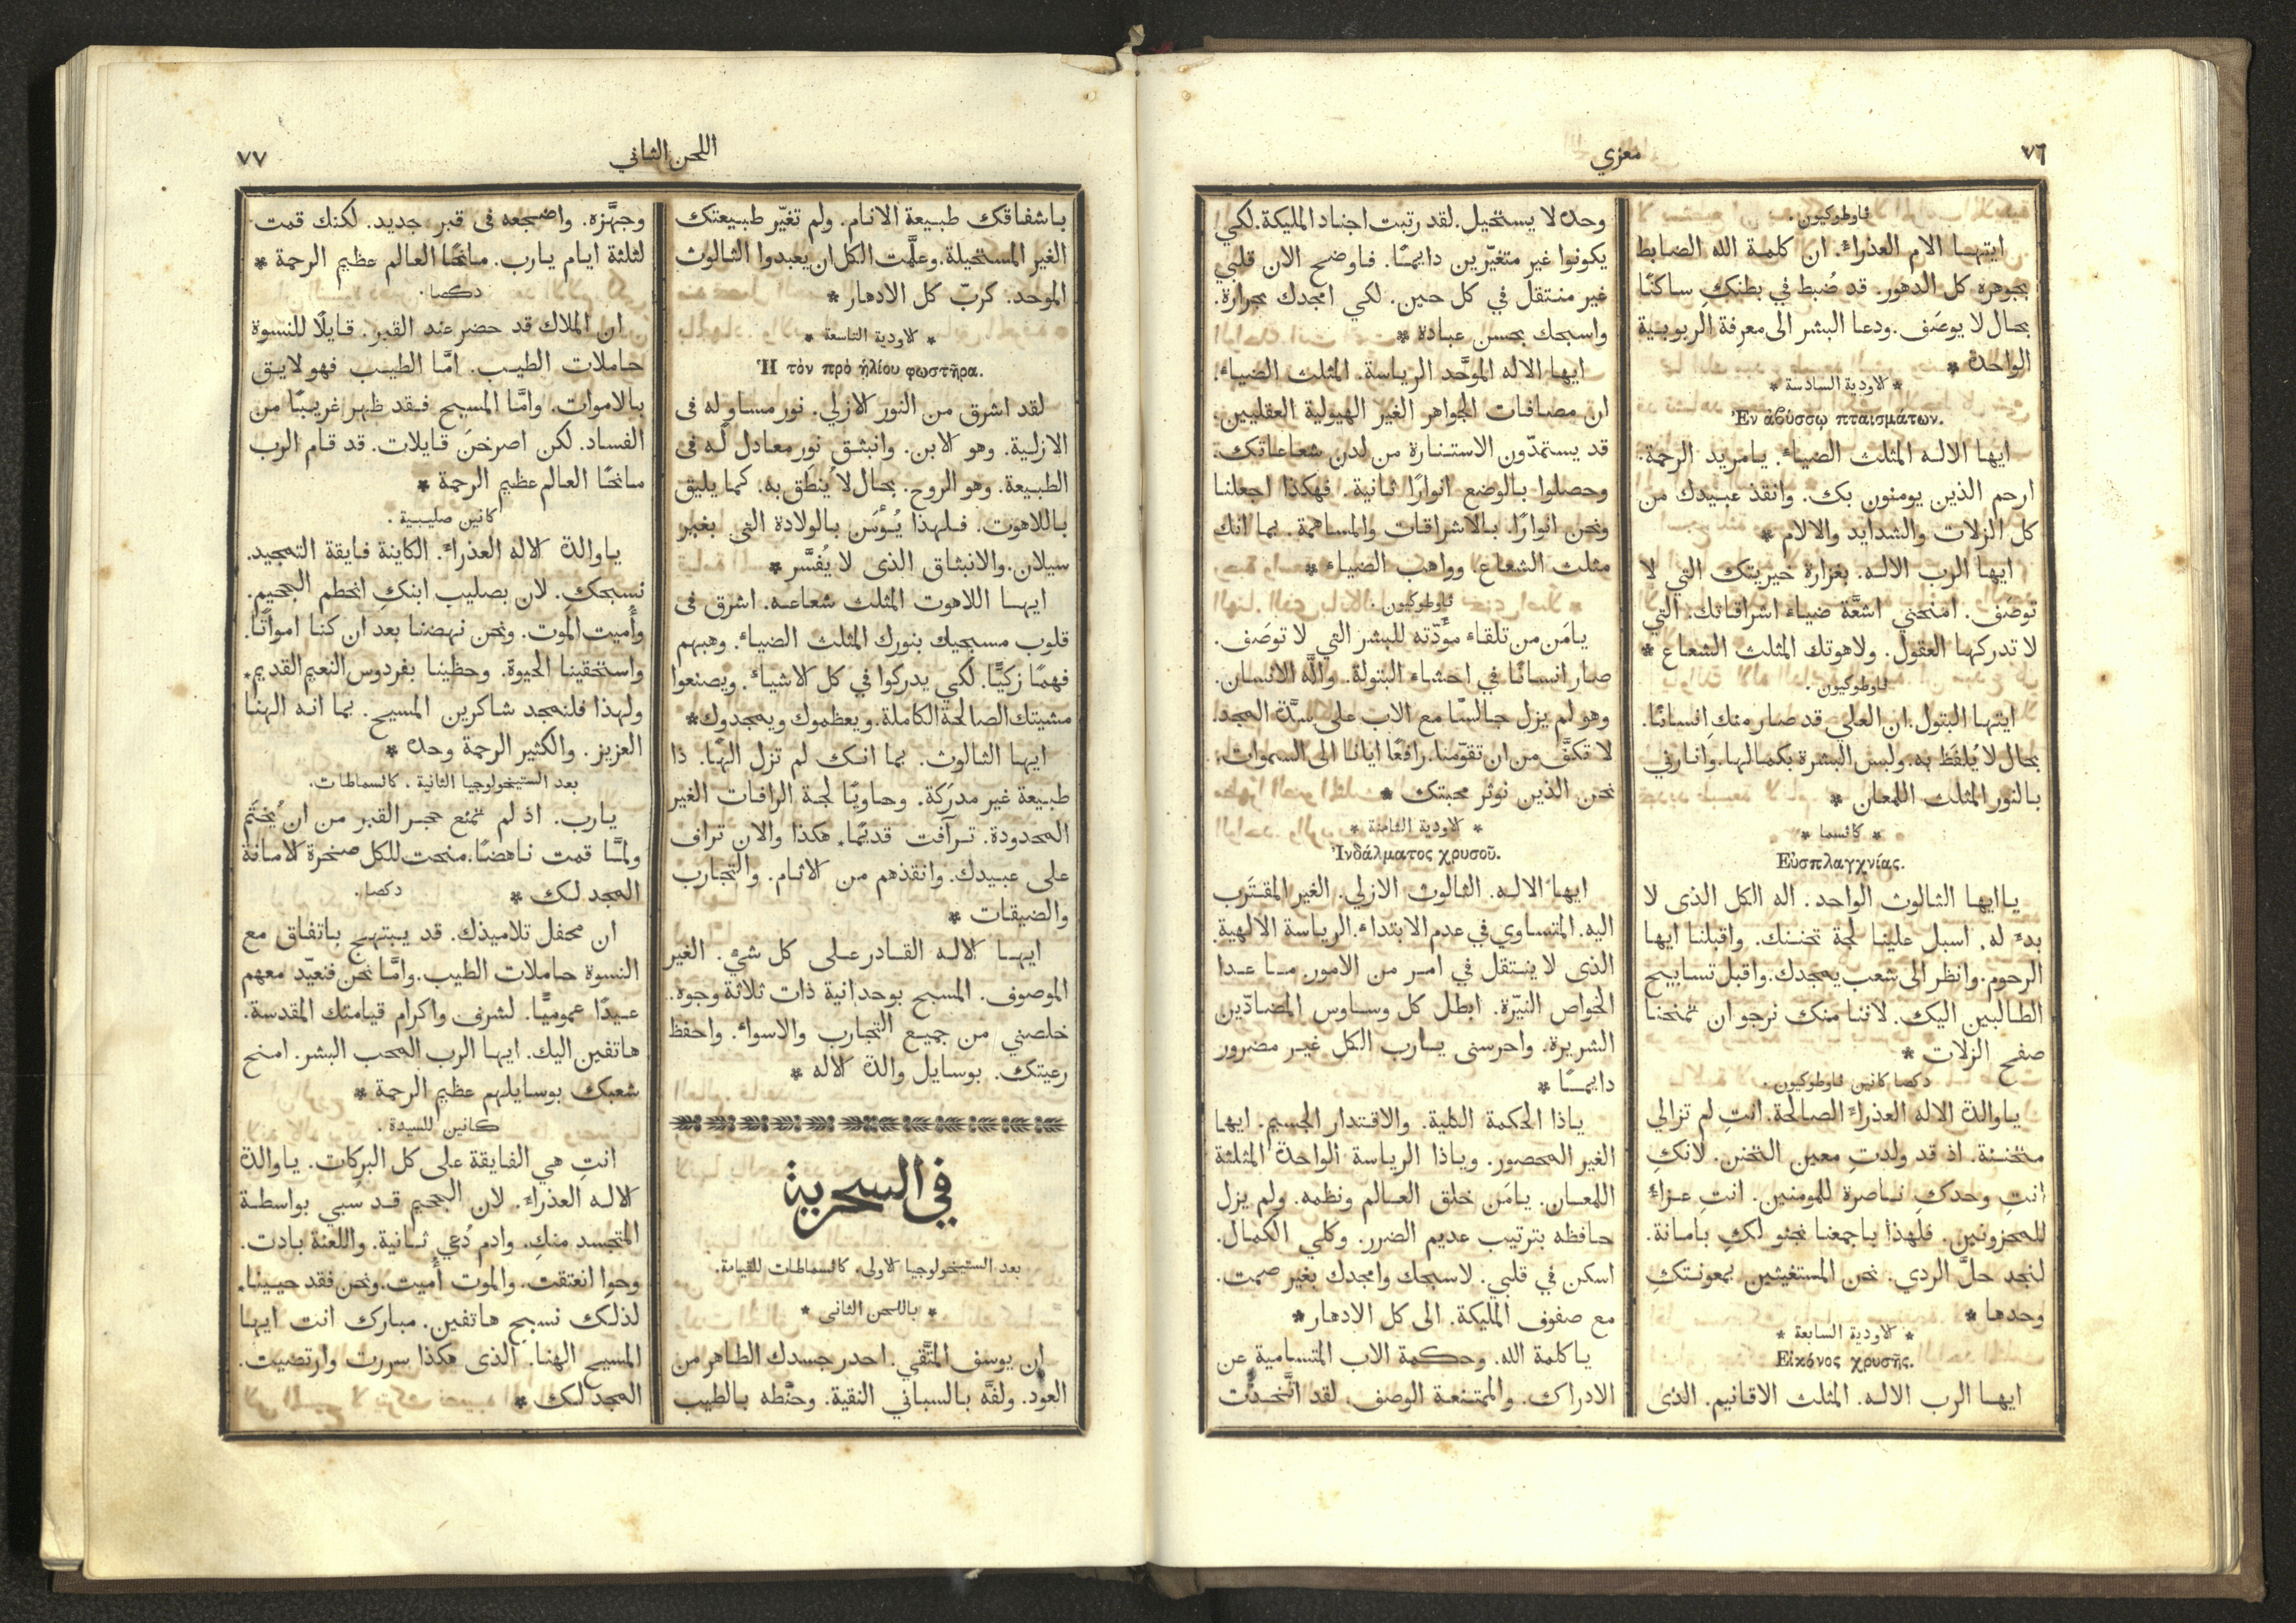 ٧٦
معزي
ثاوطوكيون.
ايتها الام العذراء. ان كلمة الله الضابط
بجوهره كل الدهور. قد ضُبط في بطنكِ ساكنًا
بحال لا يوصَف. ودعا البشر الى معرفة الربوبية
الواحدة *
* الاودية السادسة *
Ἐν ἀβύσσῳ πταισμάτων.
ايها الاله المثلث الضياء. يامريد الرحمة.
ارحم الذين يومنون بك. وانقذ عبيدك من
كل الزلات والشدايد والالام *
ايها الرب الاله. بغزارة خيريتك التي لا
توصَف. امنحني اشعَّة ضياء اشراقاتك. التي
لا تدركها العقول. ولاهوتك المثلث الشعاع *
ثاوطوكيون.
ايتها البتول. ان العلي قد صار منكِ انسانًا.
بحال لا يُلفَظ به. ولبس البشرة بكمالها. وانارني
بالنور المثلث اللمعان *
* كاثسما *
Εὐσπλαγχνίας.
ياايها الثالوث الواحد. اله الكل الذى لا
بدء له. اسبل علينا لجة تحننك. واقبلنا ايها
الرحوم. وانظر الى شعب يمجدك. واقبل تسابيح
الطالبين اليك. لاننا منك نرجو ان تمنحنا
صفح الزلات *
دكصا كانين ثاوطوكيون.
ياوالدة الاله العذراء الصالحة. انتِ لم تزالي
متحننة. اذ قد ولدتِ معين التحنن. لانكِ
انتِ وحدكِ ناصرة للمومنين. انتِ عزاء
للمحزونين. فلهذا باجمعنا نجثو لكِ بامانة.
لنجد حلَّ الردي. نحن المستغيثين بمعونتكِ
وحدها *
* الاودية السابعة *
Εἰκόνος χρυσῆς.
ايها الرب الاله. المثلث الاقانيم. الذى
وحده لا يستحيل. لقد رتبت اجناد المليكة. لكي
يكونوا غير متغيّرين دايمًا. فاوضح الان قلبي
غير منتقل في كل حين. لكي امجدك بحرارة.
واسبحك بحسن عبادة *
ايها الاله الموحَّد الرياسة. المثلث الضياء.
ان مصافات الجواهر الغير الهيولية العقليين.
قد يستمدّون الاستنارة من لدن شعاعاتك.
وحصلوا بالوضع انوارًا ثانية. فهكذا اجعلنا
ونحن انوارًا. بالاشراقات والمساهمة. بما انك
مثلث الشعاع. وواهب الضياء *
ثاوطوكيون.
يامَن من تلقاء مؤَدّته للبشر التي لا توصَف.
صار انسانًا في احشاء البتولة. وألَّه الانسان.
وهو لم يزل جالسًا مع الاب على سدَّة المجد.
لا تكفَّ من ان تقوّمنا. رافعًا ايانا الى السموات.
نحن الذين نوثر محبتك *
* الاودية الثامنة *
Ἰνδάλματος χρυσοῦ.
ايها الاله. الثالوث الازلي. الغير المقترَب
اليه. المتساوي في عدم الابتداء. الرياسة الالهية.
الذى لا ينتقل في امر من الامور. ما عدا
الخواص النيّرة. ابطل كل وساوس المضادّين
الشريرة. واحرسنى يارب الكل غير مضرور
دايمًا *
ياذا الحكمة الكلية. والاقتدار الجسيم. ايها
الغير المحصور. وياذا الرياسة الواحدة المثلثة
اللمعان. يامَن خلق العالم ونظمه. ولم يزل
حافظه بترتيب عديم الضرر. وكلي الكمال.
اسكن في قلبي. لاسبحك وامجدك بغير صمت.
مع صفوف المليكة. الى كل الادهار *
ياكلمة الله. وحكمة الاب المتسامية عن
الادراك. والممتنعة الوصف. لقد اتَّخدتَ
اللحن الثاني
٧٧
باشفاقك طبيعة الانام. ولم تغيّر طبيعتك
الغير المستحيلة. وعلَّمت الكل ان يعبدوا الثالوث
الموحد. كربّ كل الادهار *
* الاودية التاسعة *
Ἡ τὸν πρὸ ἡλίου φωστῆρα.
لقد اشرق من النور الازلي. نور مساوٍ له فى
الازلية. وهو الابن. وانبثق نور معادل له فى
الطبيعة. وهو الروح. بحال لا يُنطَق به. كما يليق
باللاهوت. فلهذا يُؤمَن بالولادة التي بغير
سيلان. والانبثاق الذى لا يُفسَّر *
ايها اللاهوت المثلث شعاعه. اشرق فى
قلوب مسبحيك بنورك المثلث الضياء. وهبهم
فهمًا زكيًّا. لكي يدركوا في كل الاشياء. ويصنعوا
مشيتك الصالحة الكاملة. ويعظموك ويمجدوك *
ايها الثالوث. بما انك لم تزل الهًا. ذا
طبيعة غير مدرَكة. وحاويًا لجة الرافات الغير
المحدودة. ترآفت قديمًا. هكذا والان تراف
على عبيدك. وانقذهم من الاثام. والتجارب
والضيقات *
ايها الاله القادر على كل شئ. الغير
الموصوف. المسبح بوحدانية ذات ثلاثة وجوه.
خلصني من جميع التجارب والاسواء. واحفظ
رعيتك. بوسايل والدة الاله *
في السحرية
بعد الستيخولوجيا الاولى. كاثسماطات للقيامة.
* باللحن الثانى *
ان يوسف المتَّقي. احدر جسدك الطاهر من
العود. ولفَّه بالسباني النقية. وحنَّطه بالطيب
وجهَّزه. واضجعه فى قبر جديد. لكنك قمت
لثلثة ايام يارب. مانحًا العالم عظيم الرحمة *
دكصا.
ان الملاك قد حضر عند القبر. قايلًا للنسوة
حاملات الطيب. امَّا الطيب فهو لايق
بالاموات. وامَّا المسيح فقد ظهر غريبًا من
الفساد. لكن اصرخنَ قايلات. قد قام الرب
مانحًا العالم عظيم الرحمة *
كانين صليبية.
ياوالدة الاله العذراء. الكاينة فايقة التمجيد.
نسبحكِ. لان بصليب ابنكِ انحطم الجحيم.
وأُميت الموت. ونحن نهضنا بعد ان كنا امواتًا.
واستحقينا الحيوة. وحظينا بفردوس النعيم القديم.
ولهذا فلنمجد شاكرين المسيح. بما انه الهنا
العزيز. والكثير الرحمة وحده *
بعد الستيخولوجيا الثانية. كاثسماطات.
يارب. اذ لم تمنع حجر القبر من ان يُختَم
ولمَّا قمت ناهضًا. منحت للكل صخرة الامانة
المجد لك *
دكصا.
ان محفل تلاميذك. قد يبتهج باتفاق مع
النسوة حاملات الطيب. وامَّا نحن فنعيّد معهم
عيدًا عموميًّا. لشرف واكرام قيامتك المقدسة.
هاتفين اليك. ايها الرب المحب البشر. امنح
شعبك بوسايلهم عظيم الرحمة *
كانين للسيدة.
انتِ هي الفايقة على كل البركات. ياوالدة
الاله العذراء. لان الجحيم قد سُبي بواسطة
المتجسد منكِ. وادم دُعي ثانية. واللعنة بادت.
وحوا انعتقت. والموت أُميت. ونحن فقد حيينا.
لذلك نسبح هاتفين. مبارك انت ايها
المسيح الهنا. الذى هكذا سررت وارتضيت.
المجد لك *